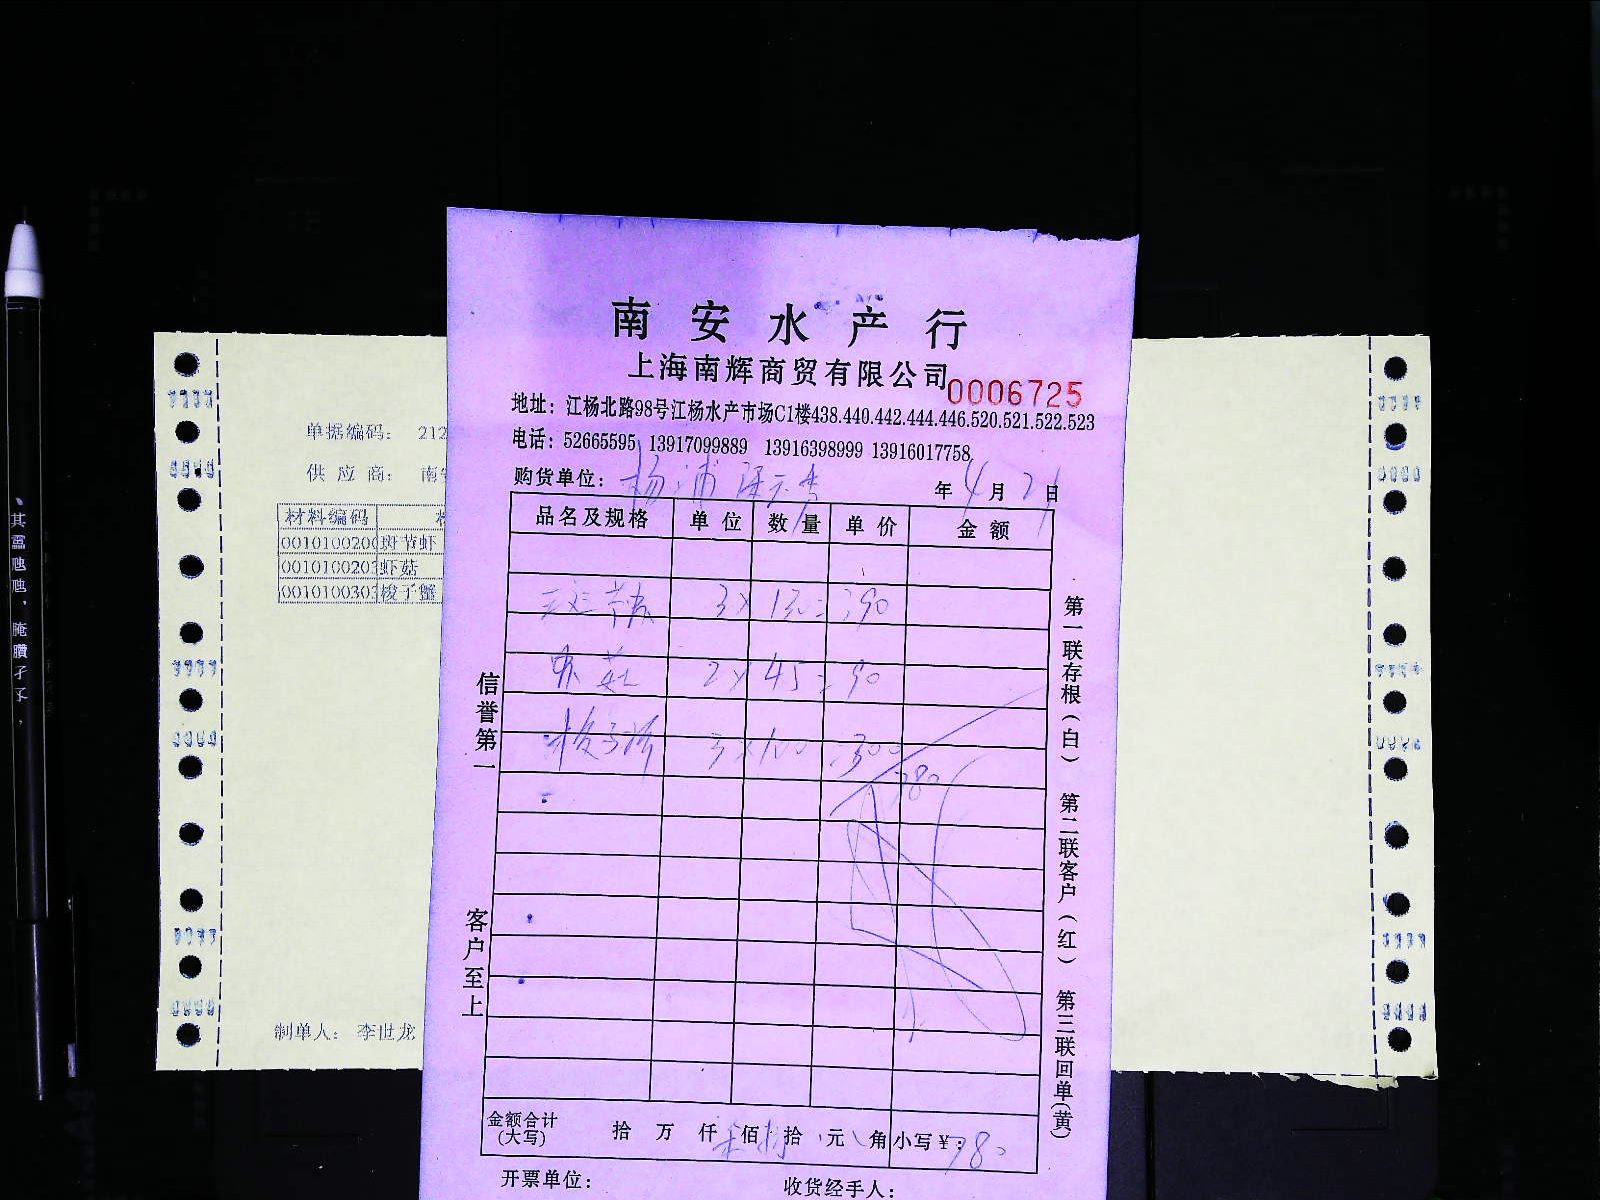 南安水产行
上海南辉商贸有限公司
0006725
地址：江杨北路98号江杨水产市场C1楼438.440.442.444.446.520.521.522.523
电话：52665595 13917099889 13916398999 13916017758
购货单位：杨浦 年4月21日
品名及规格 单位 数量 单价 金额
3×130=390
虾菇 2×45=90
梭子蟹 3×100=300
780
金额合计(大写) 拾 万 仟 佰 拾 元 角 小写￥：780
开票单位： 收货经手人：
信誉第一
客户至上
第一联存根(白) 第二联客户(红) 第三联回单(黄)
单据编码： 212
供应商： 南
材料编码
0010100200 斑节虾
0010100203 虾菇
0010100303 梭子蟹
制单人： 李世龙